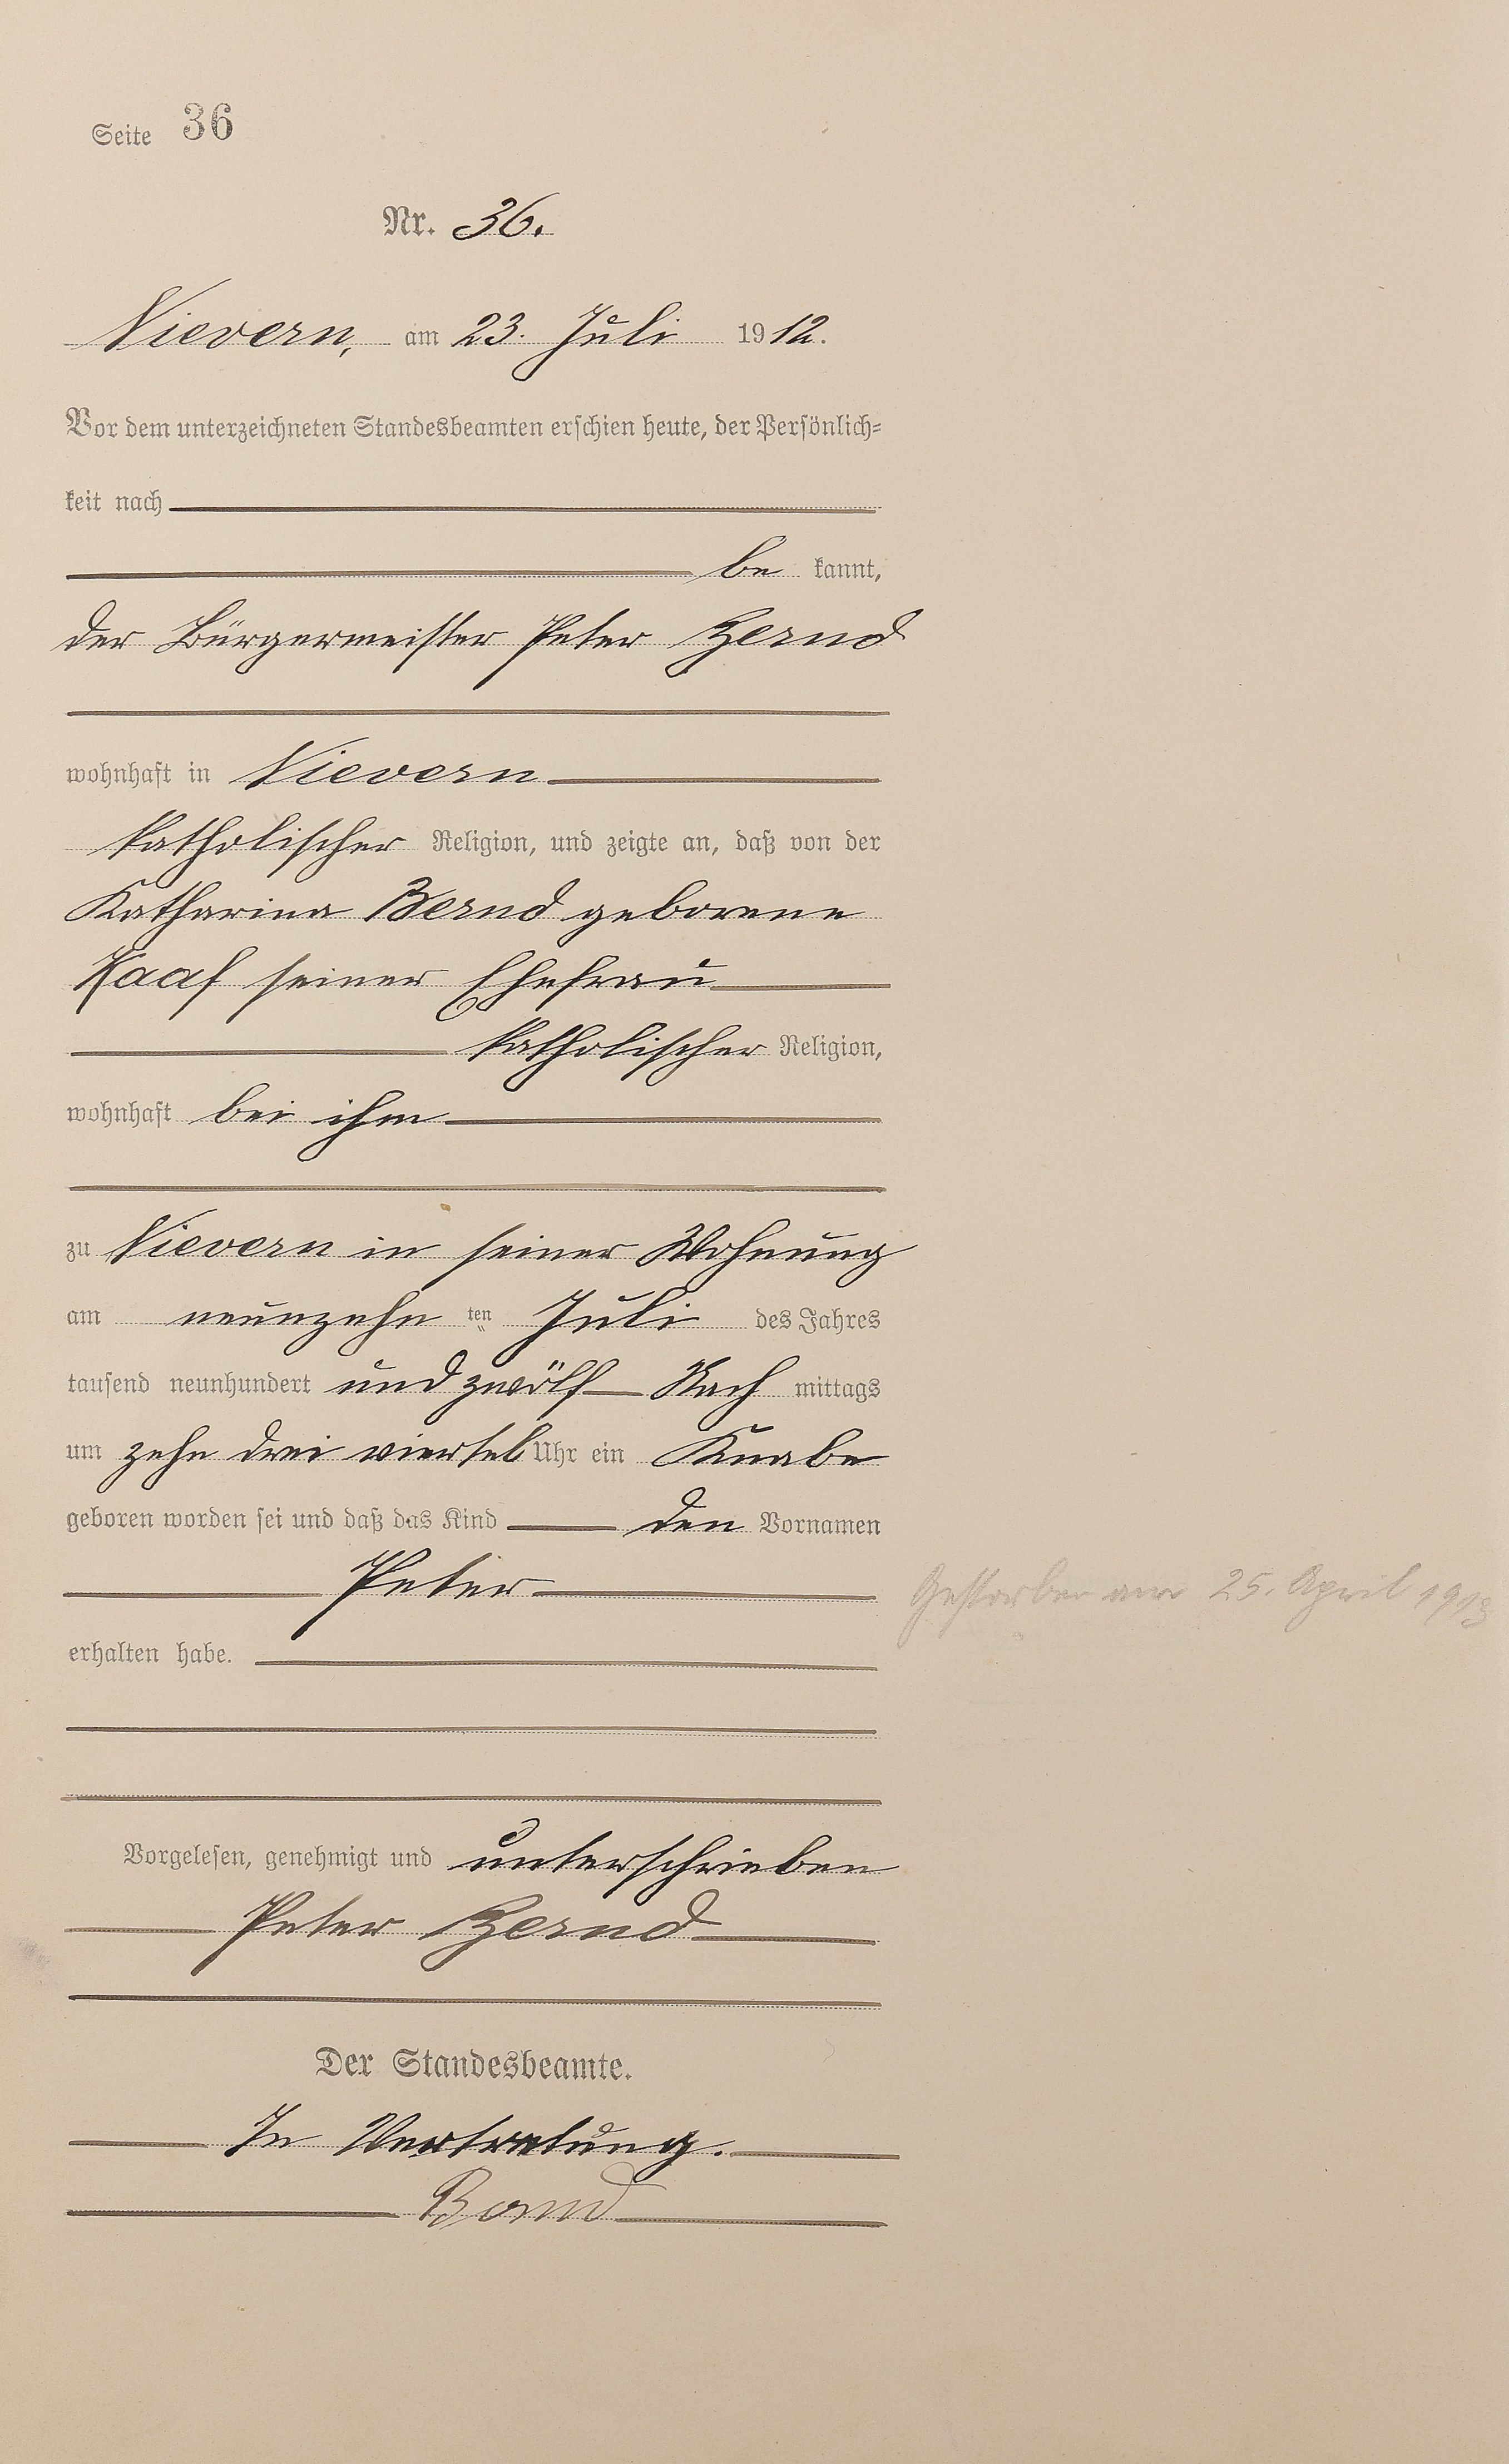 Seite 36
Nr. 36.
Nievern, am 23. Juli 1912.
Vor dem unterzeichneten Standesbeamten erschien heute, der Persönlich=
keit nach
be kannt,
der Bürgermeister Peter Bernd
wohnhaft in Nievern
katholischer Religion, und zeigte an, daß von der
Katharina Bernd geborene
Kaaf seiner Ehefrau
katholischer Religion,
wohnhaft bei ihm
zu Nievern in seiner Wohnung
am neunzehn ten Juli des Jahres
tausend neunhundert und zwölf Nach mittags
um zehn drei viertel Uhr ein Knabe
geboren worden sei und daß das Kind den Vornamen
Peter
Gestorben am 25. April 1913
erhalten habe.
Vorgelesen, genehmigt und unterschrieben
Peter Bernd
Der Standesbeamte.
In Vertretung.